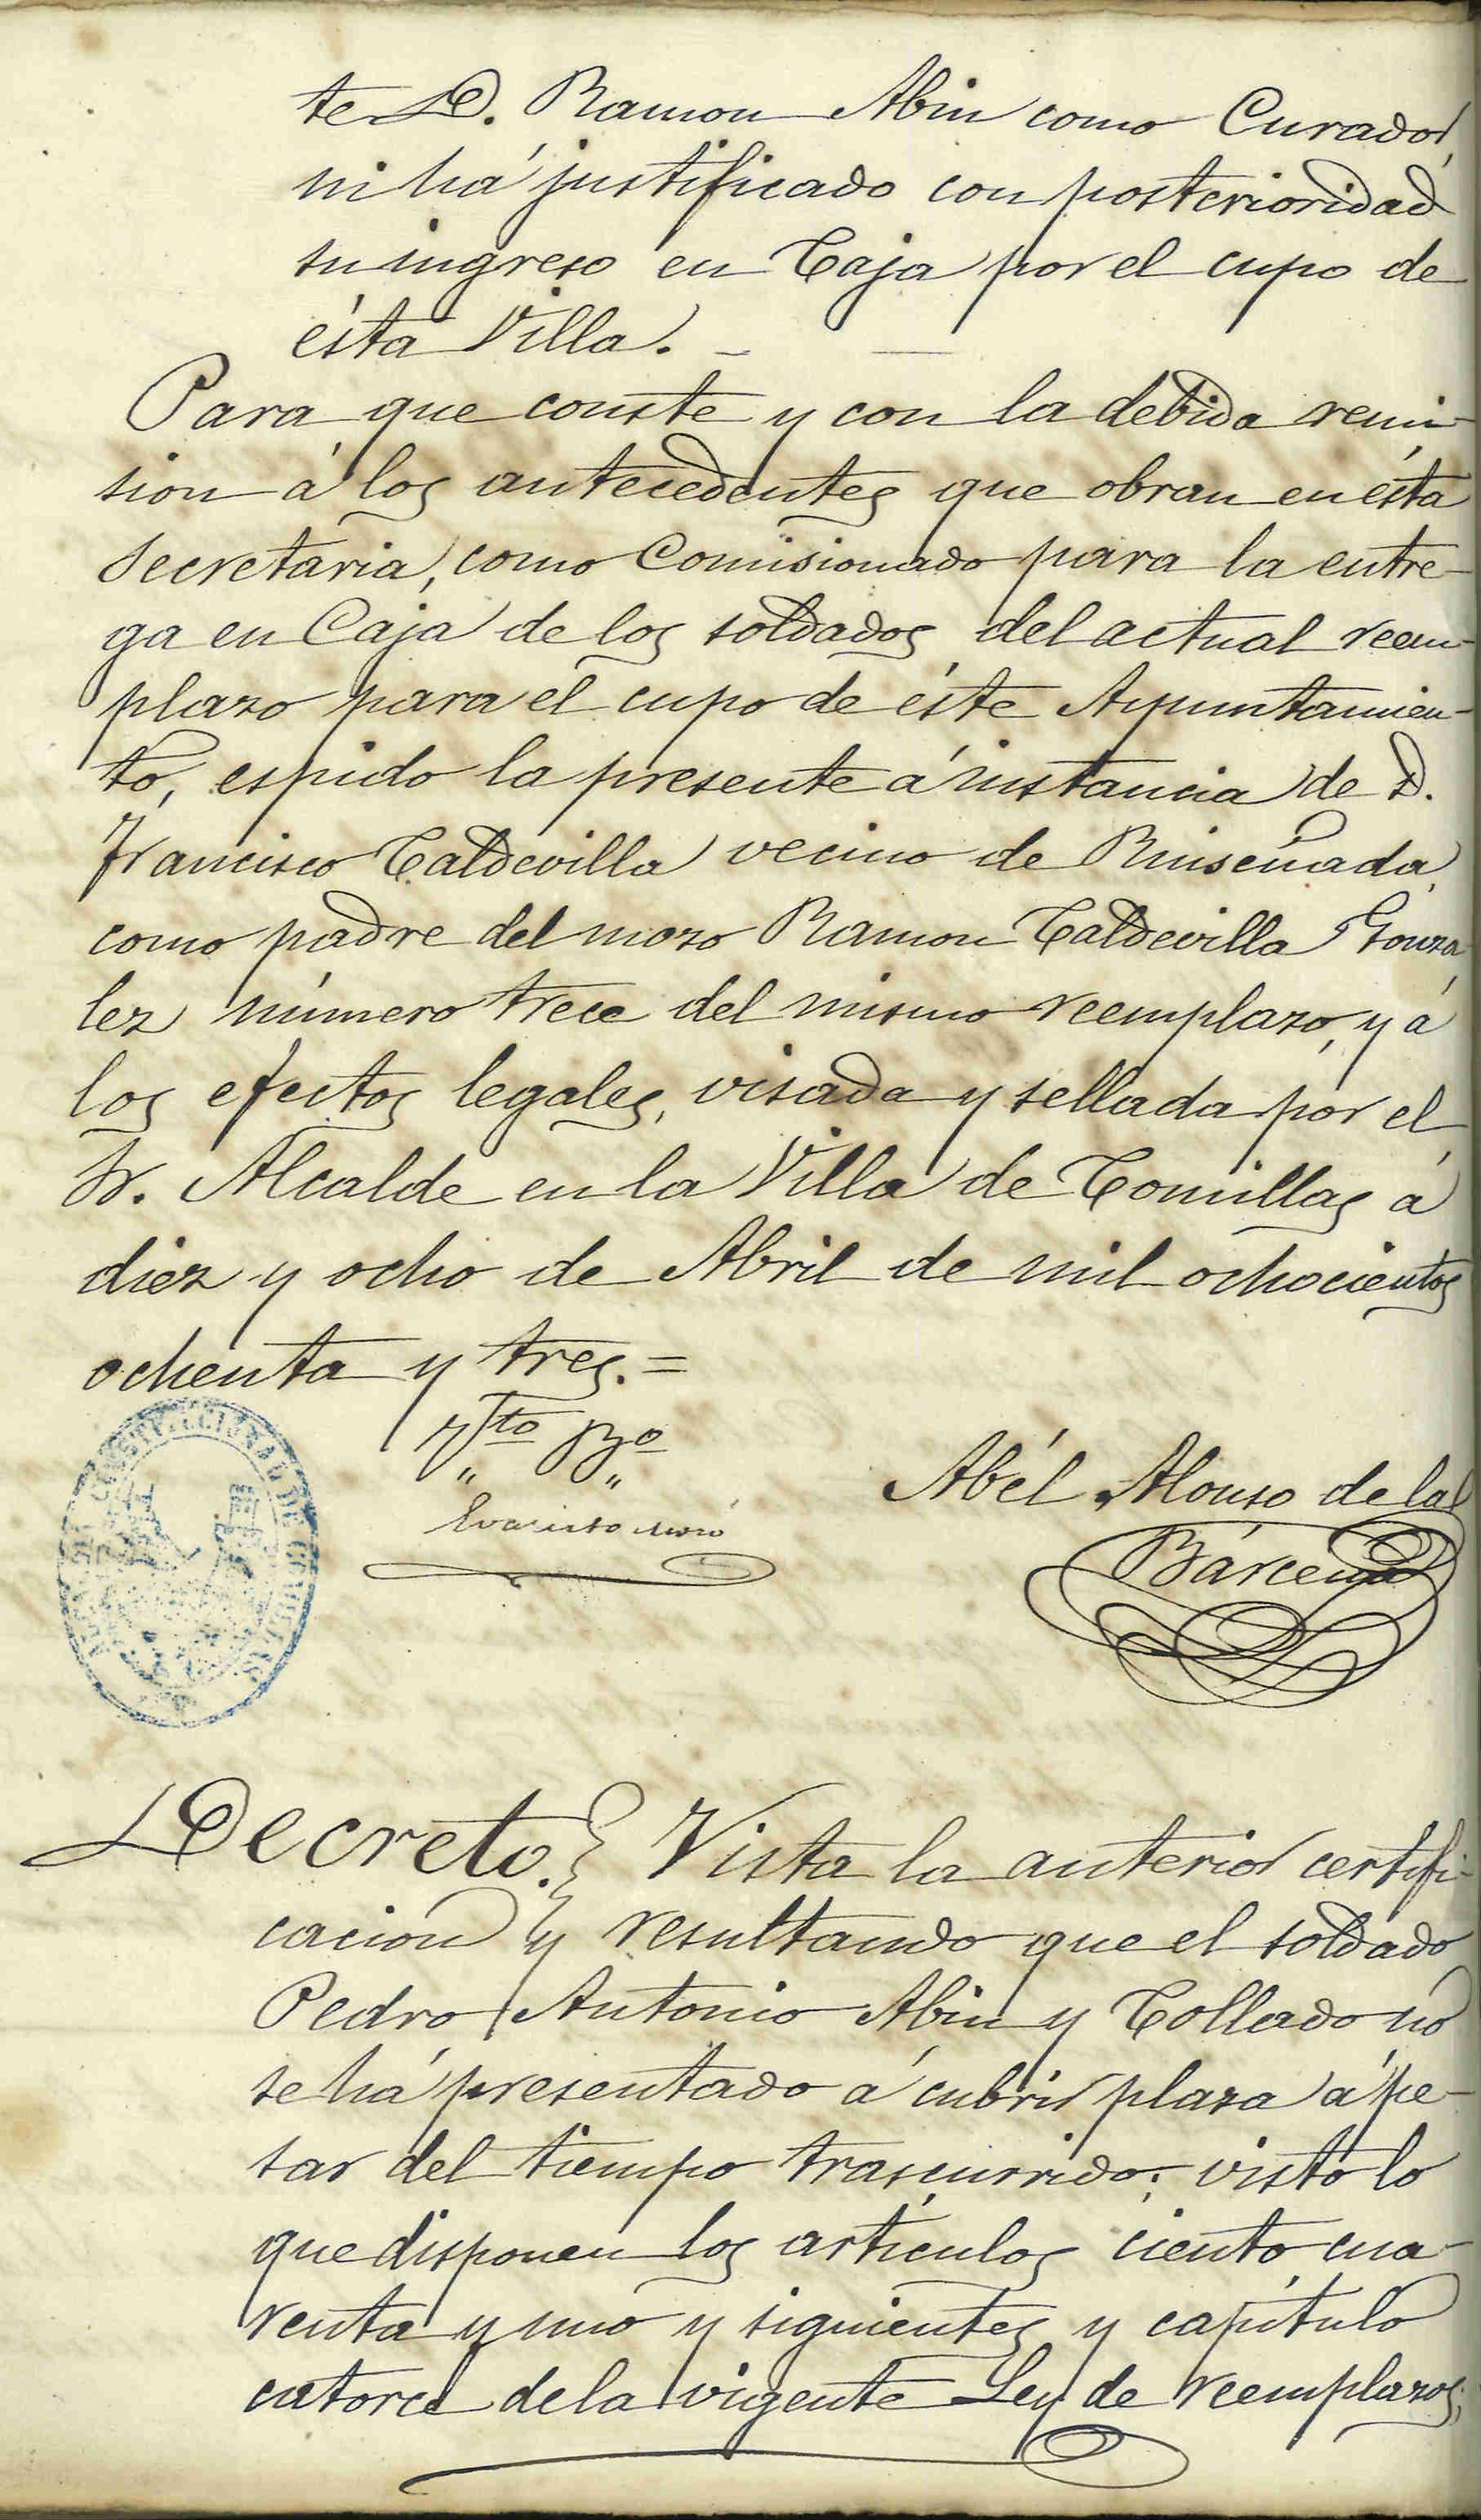 te D. Ramon Abin como Curador,
ni há justificado con posterioridad
su ingreso en Caja por el cupo de
ésta Villa. _ _
Para que conste y con la debida remi-
sion á los antecedentes que obran en ésta
Secretaria, como Comisionado para la entre-
ga en Caja de los soldados del actual reem-
plazo para el cupo de éste Ayuntamien-
to, espido la presente á instancia de D.
Francisco Caldevilla vecino de Ruiseñada,
como padre del mozo Ramon Caldevilla Gonza
lez número trece del mismo reemplazo, y á
los efectos legales, visada y sellada por el
Sr. Alcalde en la Villa de Comillas á
diez y ocho de Abril de mil ochocientos
ochenta y tres. =
Vto Bo
Evaristo
CONSTITUCIONAL DE COMILLAS
Abél Alonso de la
Bárcena
Decreto. Vista la anterior certifi-
cacion y resultando que el soldado
Pedro Antonio Abin y Collado no
se há presentado á cubrir plaza á pe-
sar del tiempo trascurrido: visto lo
que disponen los artículos ciento cua-
renta y uno y siguientes y capítulo
catorce de la vigente Ley de reemplazos;